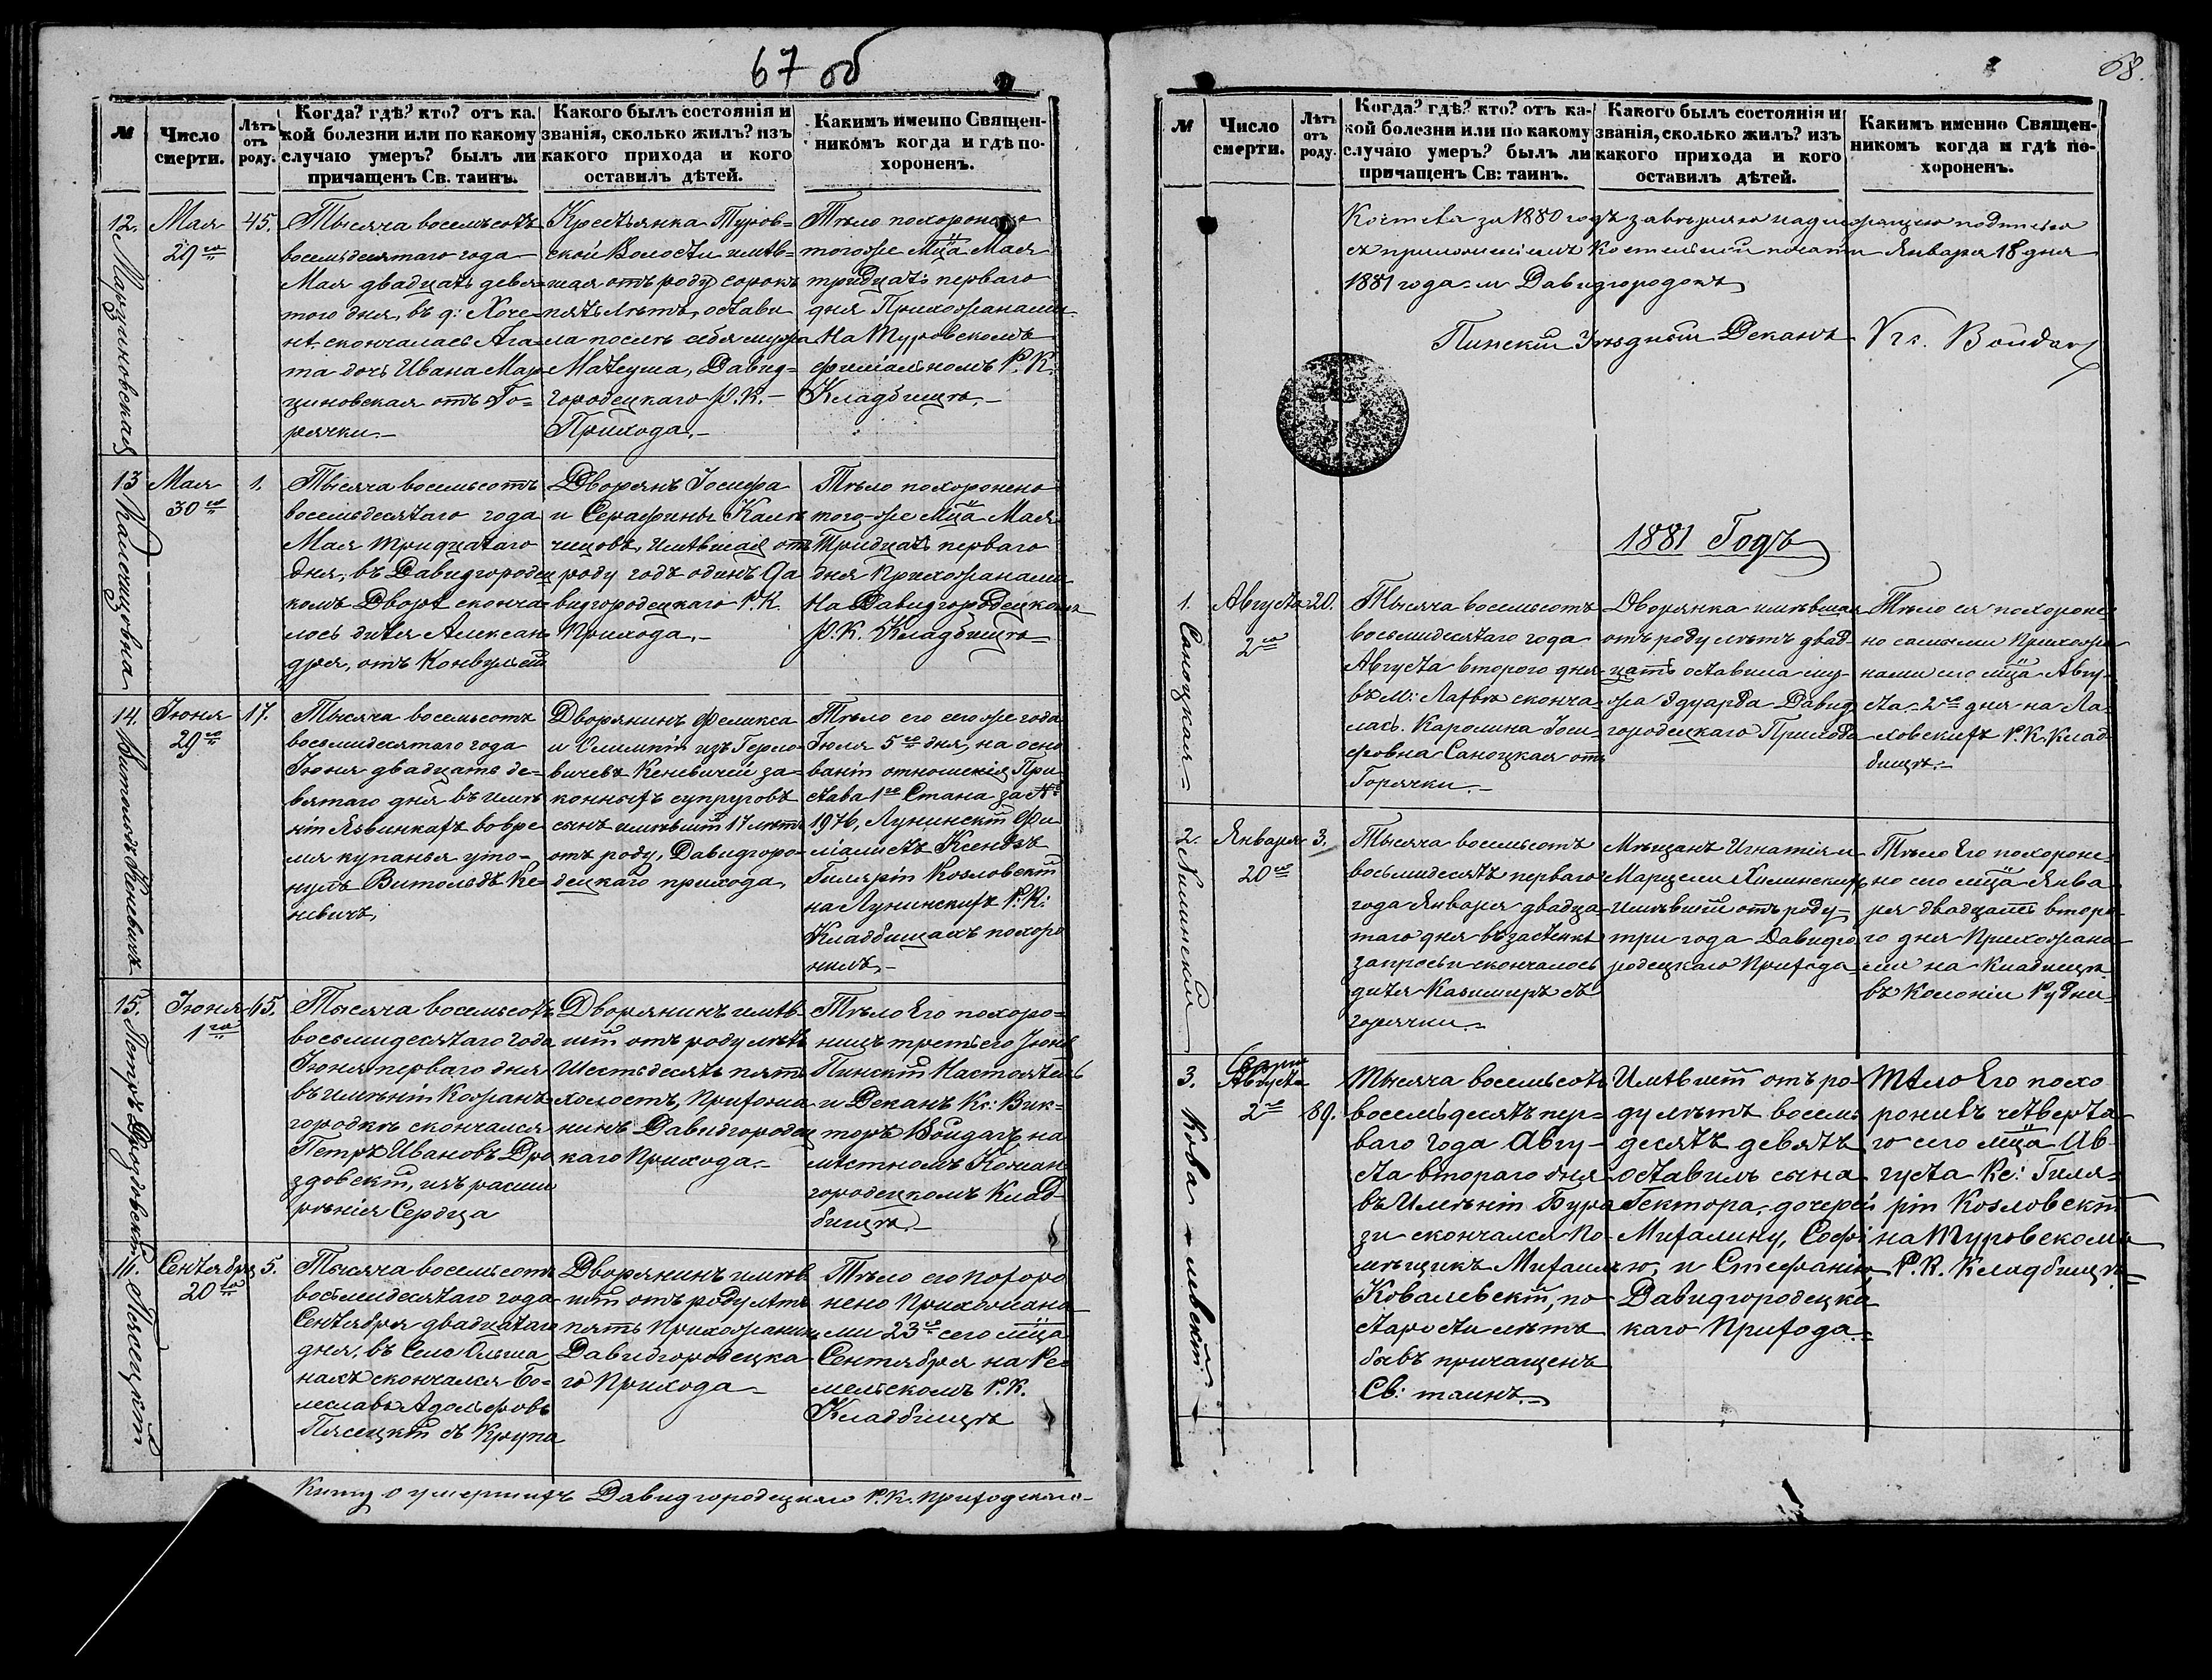 67 об
№
Число смерти.
Лѣтъ отъ роду.
Когда? гдѣ? кто? отъ ка-
кой болезни или по какому
случаю умеръ? былъ ли
причащенъ Св. таинъ.
Какого былъ состоянія и
званія, сколько жилъ? изъ
какого прихода и кого
оставилъ дѣтей.
Какимъ именно Священ-
никомъ когда и гдѣ по-
хороненъ.
12.
Марциновская
Мая
29го
45.
Тысяча восемьсотъ
восемьдесятаго года
Мая двадцать девя-
того дня, въ д: Хоче-
нѣ скончалась Ага-
та дочь Ивана Мар-
циновская отъ Го-
рячки.–
Крестьянка Туров-
ской Волости имѣв-
шая отъ роду сорокъ
пять лѣтъ, остави
ла послѣ себя мужа
Матеуша, Давид-
городецкаго Р.К.–
Прихода.–
Тѣло похоронено
того же мца Мая
тридцать перваго
дня Прихожанами
на Туровскомъ
филіальномъ Р.К.
Кладбищѣ.–
13
Мая
30го
1.
Тысяча восемьсотъ
восемьдесятаго года
Мая тридцатаго
дня, въ Давидгородец
комъ Дворѣ сконча-
лось дитя Алексан
дря, отъ Конвульсій
Дворянъ Іосифа
и Серафины
роду годъ одинъ Да
видгородецкаго Р.К.
Прихода.–
Тѣло похоронено
того-же мца Мая
Тридцать перваго
дня прихожанами
на Давидгородецкомъ
Р.К. Кладбищѣ
14.
Витольдъ Кеневичъ
Іюня
29го
17.
Тысяча восемьсотъ
восьмидесятаго года
Іюня двадцать де-
вятаго дня въ имѣ
ніи Язвинкахъ вовре
мя купанья уто-
нулъ Витольдъ Ке-
невичъ,
Дворянинъ Феликса
и Олимпіи изъ
Кеневичей за-
конныхъ супруговъ
сынъ имѣвшій 17 лѣтъ
отъ роду, Давидгоро-
децкаго прихода,
Тѣло его сего же года
Іюля 5го дня, на осно
ваніи отношенія При
става 1го Стана за №
1976, Лунинскій Фи
ліалистъ Ксендзъ
Гиляріи Козловскій
на Лунинскихъ Р.К:
Кладбищахъ похоро
нилъ.–
15.
Петръ Дроздовскій
Іюня
1го
65.
Тысяча восемьсотъ
восьмидесятаго года
Іюня перваго дня
въ имѣніи Кожанъ-
городкѣ скончался
Петръ Ивановъ Дро
здовскій, изъ расши
рѣнія Сердца
Дворянинъ имѣв-
шій отъ роду лѣтъ
Шестьдесятъ пять
холостъ, Прихожа
нинъ Давидгородец
каго Прихода.–
Тѣло Его похоро-
нилъ третьего Іюня
Пинскій Настоятель
и Деканъ Кс: Вик-
торъ Войдагъ на
мѣстномъ Кожан
городецкомъ Клад-
бищѣ.–
16.
Пясецкій
Сентября
20го
5.
Тысяча восемьсотъ
восьмидесятаго года
Сентября двадцатаго
дня, въ Селѣ Ольша
нахъ скончался Бо-
леславъ Адольфовъ
Пясецкій съ Крупа
Дворянинъ имѣв
шій отъ роду лѣтъ
пять Прихожанинъ
Давидгородецка-
го Прихода–
Тѣло его похоро
нено Прихожана
ми 23го сего мца
Сентября на Ре-
мельскомъ Р.К.
Кладбищѣ
Книгу о умершихъ Давидгородецкаго Р.К. приходскаго
68.
№
Число смерти.
Лѣтъ отъ роду.
Когда? гдѣ? кто? отъ ка-
кой болезни или по какому
случаю умеръ? былъ ли
причащенъ Св: таинъ.
Какого былъ состоянія и
званія, сколько жилъ? изъ
какого прихода и кого
оставилъ дѣтей.
Какимъ именно Священ-
никомъ когда и гдѣ по-
хороненъ.
Костела за 1880 годъ завѣряю надлежащею подписью
съ приложеніемъ Костельной печати Января 18 дня
1881 года м Давидгородокъ
Пинскій Уѣздный Деканъ
1881 Годъ
1.
Саноцкая
Августа
2го
20.
Тысяча восемьсотъ
восьмидесятаго года
Августа второго дня
въ м: Лахвѣ сконча
лась Каролина Іоси
фовна Саноцкая отъ
Горячки.–
Дворянка имѣвшая
отъ роду лѣтъ двад-
цать оставила му-
жа Эдуарда Давид
городецкаго Прихода
Тѣло ея похороне-
но самыми Прихожа
нами сего мца Авгу
ста 2го дня на Ла
ховскихъ Р.К. Клад
бищѣ.–
2.
Января
20го
3.
Тысяча восемьсотъ
восьмидесятъ перваго
года Января двадца-
таго дня въ застѣнкѣ
запросьи скончалось
дитя Казимиръ съ
горячки.–
Мѣщанъ Игнатія и
Марцели
Имѣвшій отъ роду
три года Давидго
родецкаго Прихода
Тѣло Его похороне-
но сего мца Янва
ря двадцать второ-
го дня Прихожана
ми на Кладбищѣ
въ Колоніи Рудни
3.
Ковалевскій
Августа
2го
89.
Тысяча восемьсотъ
восемьдесятъ пер-
ваго года Авгу-
ста втораго дня
въ Имѣніи Бура
зи скончался по-
мѣщикъ Михаилъ
Ковалевскій, по
старости лѣтъ
бывъ причащенъ
Св: таинъ.–
Имѣвшій отъ ро-
ду лѣтъ восемь
десятъ девять
оставилъ сына
Гектора, дочерей
Михалину, Софі
ю, и Стефанію
Давидгородецка
каго Прихода.
Тѣло Его похо
ронилъ четверта
го сего мца Ав-
густа Кс: Гиля-
ріи Козловскій
на Туровскомъ
Р.К. Кладбищѣ